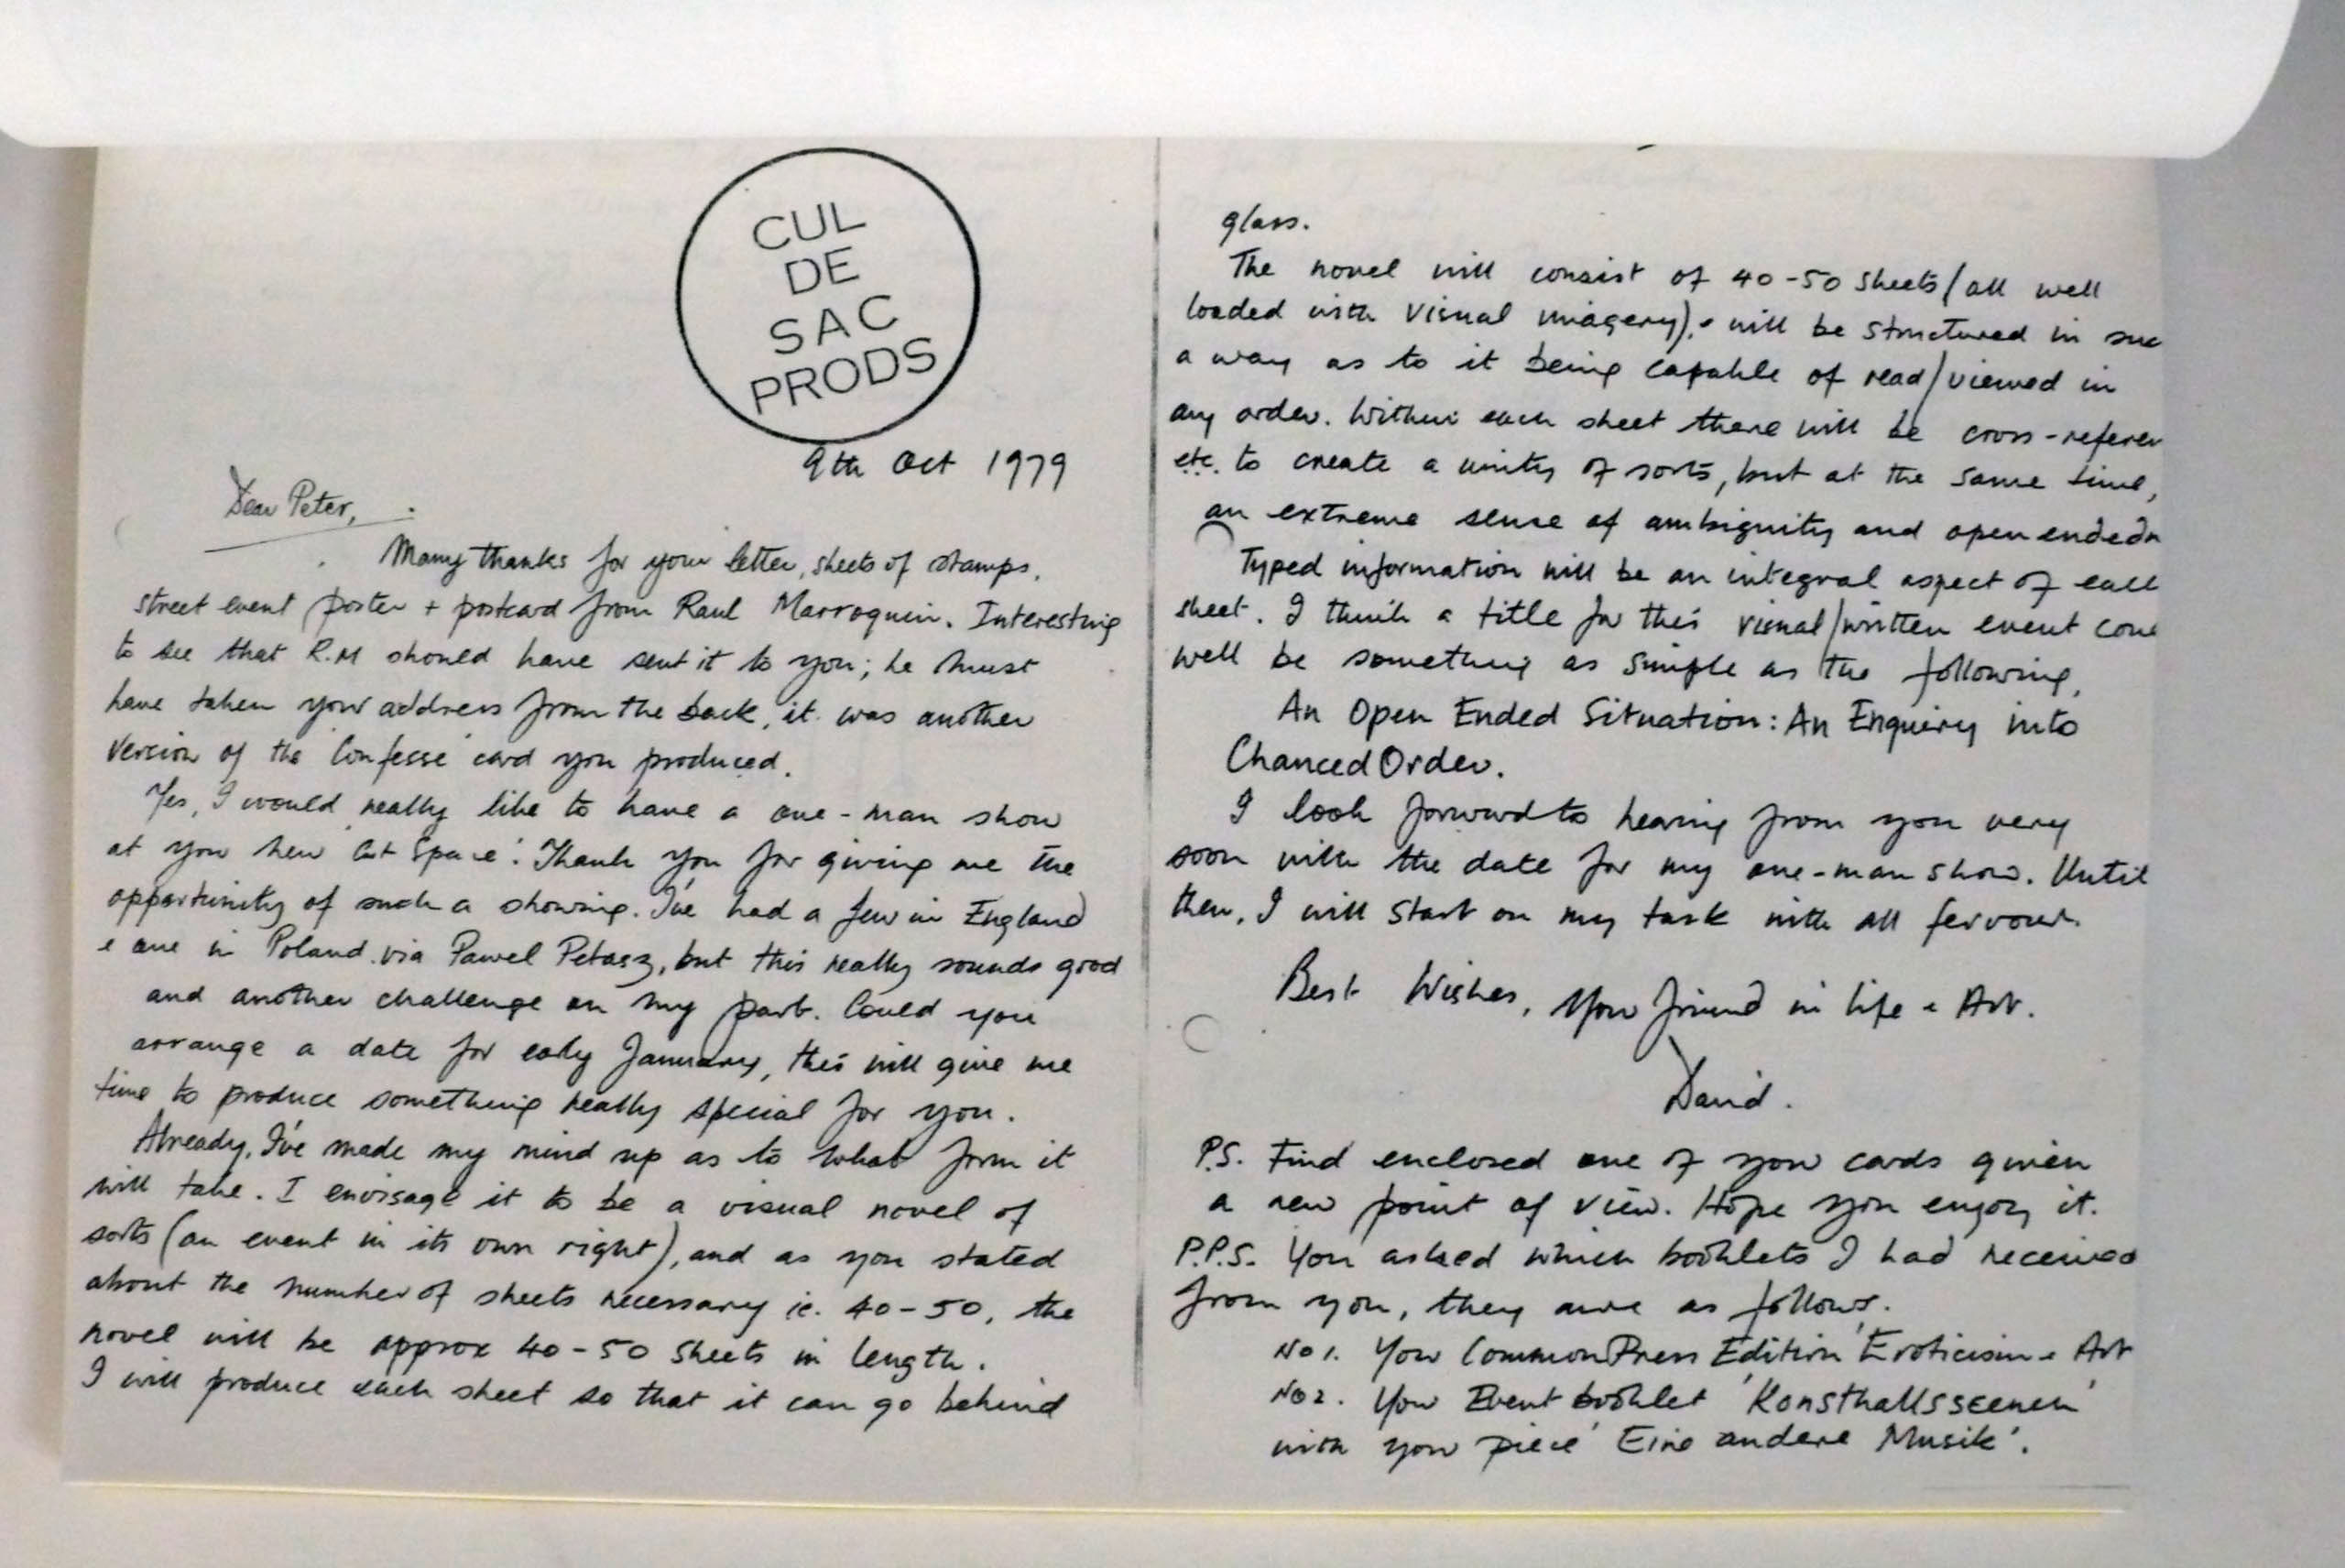 CUL
DE
SAC
PRODS
9th Oct 1979
Dear Peter,
Many thanks for your letter, sheets of stamps,
street event poster + postcard from Raul Marroquin. Interesting
to see that R.M should have sent it to you; he must
have taken your address from the back, it was another
version of the 'Confesse' card you produced.
Yes, I would really like to have a one-man show
at you new 'Art Space'. Thank you for giving me the
opportunity of such a showing. I've had a few in England
& one in Poland via Pawel Petasz, but this really sounds good
and another challenge on my part. Could you
arrange a date for early January, this will give me
time to produce something really special for you.
Already, I've made my mind up as to what form it
will take. I envisage it to be a visual novel of
sorts (an event in its own right), and as you stated
about the number of sheets necessary ie. 40-50, the
novel will be approx 40-50 sheets in length.
I will produce each sheet so that it can go behind
glass.
The novel will consist of 40-50 sheets (all well
loaded with visual imagery), & will be structured in suc
a way as to it being capable of read/viewed in
any order. Within each sheet there will be cross-referen
etc. to create a unity of sorts, but at the same time,
an extreme sense of ambiguity and open endedn
Typed information will be an integral aspect of each
sheet. I think a title for this visual/written event coul
well be something as simple as the following,
An Open Ended Situation: An Enquiry into
Chanced Order.
I look forward to hearing from you very
soon with the date for my one-man show. Until
then, I will start on my task with all fervour.
Best Wishes, Your friend in life & Art.
David.
P.S. Find enclosed one of your cards given
a new point of view. Hope you enjoy it.
P.P.S. You asked which booklets I had received
from you, they are as follows,
No 1. Your Common Press Edition 'Eroticism & Art
No 2. Your Event booklet 'Konsthallsscenen'
with your piece 'Eine andere Musik'.